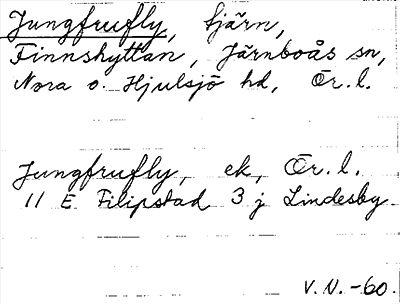 Jungfrufly, tjärn,
Finnshyttan, Järnboås sn,
Nora o. Hjulsjö hd, Ör. l.
Jungfrufly, ek, Ör. l.
11 E Filipstad 3 j Lindesby.
V.N. -60.